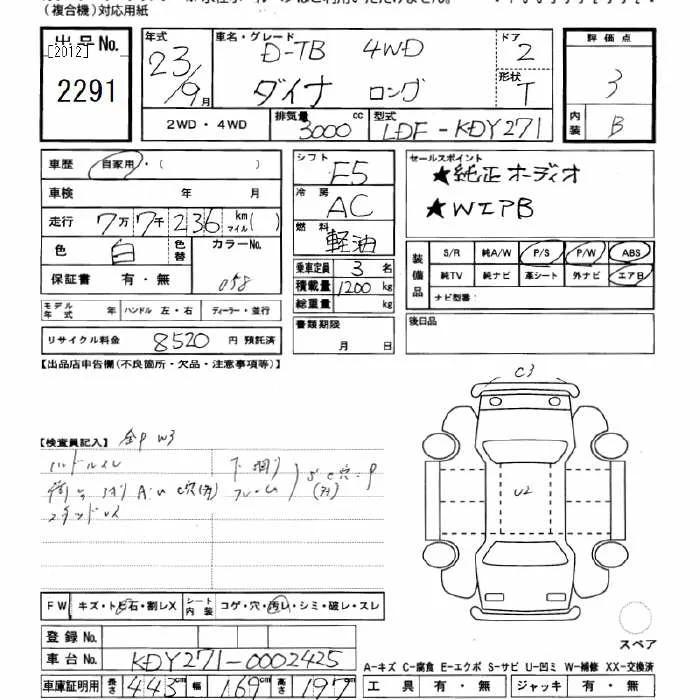 (複合機)対応用紙
出品No.
[2012]
2291
年式
23/9月
車名・グレード
D-TB 4WD
ダイナ ロング
ドア
2
形状
T
評価点
3
内装
B
2WD・4WD
排気量
3000cc
型式
LDF-KDY271
車歴 自家用・( )
車検 年 月
走行 7万7千236 km マイル( )
色 白 色替 カラーNo.
058
保証書 有・無
モデル年式 年 ハンドル 左・右 ディーラー・並行
リサイクル料金 8520 円 預託済
シフト F5
冷房 AC
燃料 軽油
乗車定員 3名
積載量 1200kg
総重量 kg
書類期限
月 日
セールスポイント
★純正オーディオ
★WエアB
装備品
S/R 純A/W P/S P/W ABS
純TV 純ナビ 革シート 外ナビ エアB
ナビ型番:
後日品
【出品店申告欄(不良箇所・欠品・注意事項等)】
C3
U2
【検査員記入】 全P W3
FW キズ・トビ石・割レX シート内装 コゲ・穴・汚レ・シミ・破レ・スレ
登録No.
車台No. KDY271-0002425
車庫証明用 長さ 445cm 幅 169cm 高さ 197cm
スペア
A-キズ C-腐食 E-エクボ S-サビ U-凹ミ W-補修 XX-交換済
工具 有・無 ジャッキ 有・無